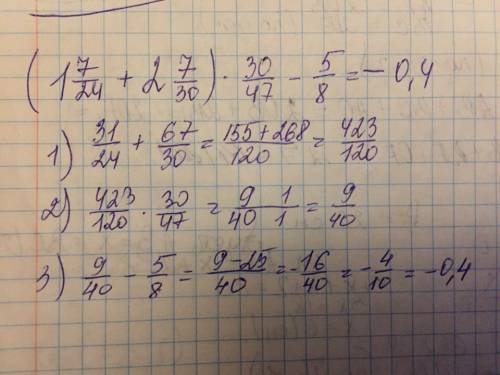 (1 7/24 + 2 7/30) · 30/47 - 5/8 = - 0,4
1) 31/24 + 67/30 = 155+268/120 = 423/120
2) 423/120 · 30/47 = 9/40 1/1 = 9/40
3) 9/40 - 5/8 = 9-25/40 = -16/40 = -4/10 = -0,4